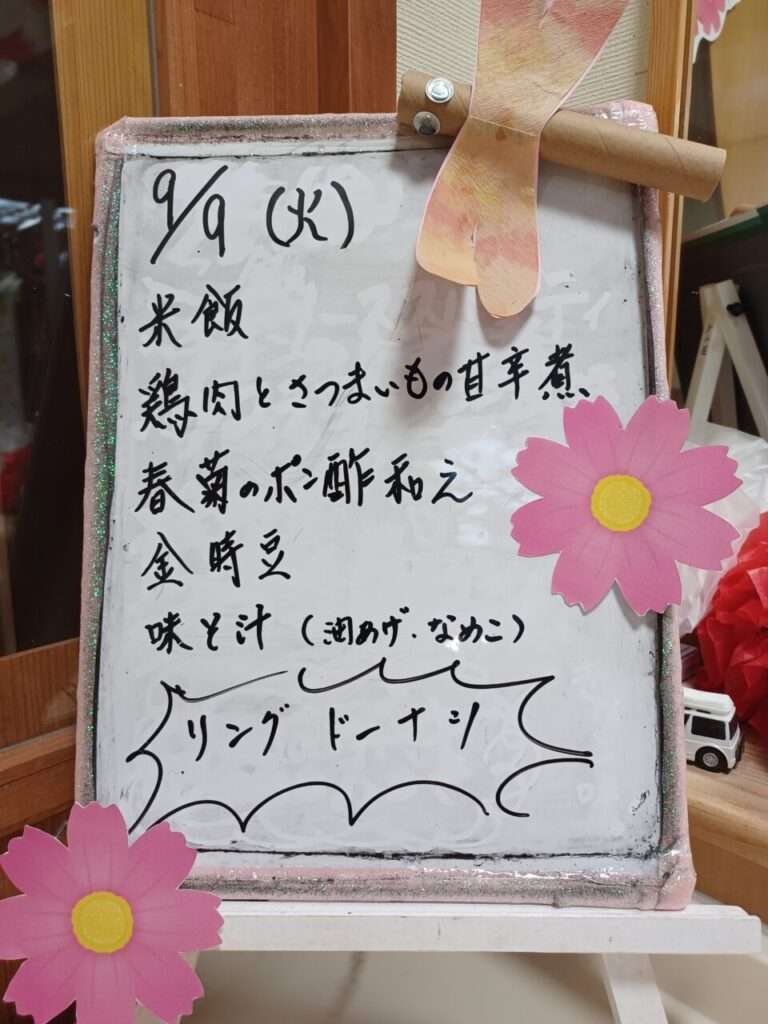 9/9 (火)
米飯
鶏肉とさつまいもの甘辛煮
春菊のポン酢和え
金時豆
味そ汁 (油あげ、なめこ)
リング ドーナツ